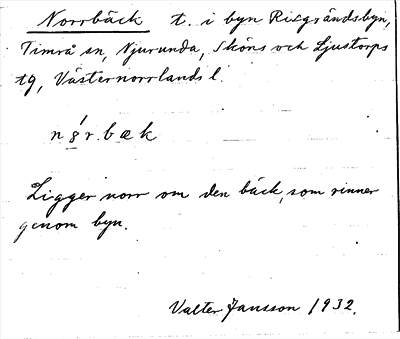 Norrbäck t. i byn Risgrändsbyn,
Timrå sn, Njurunda, Sköns och Ljustorps
tg, Västernorrlands l.
Ligger norr om den bäck, som rinner
genom byn.
Valter Jansson 1932.